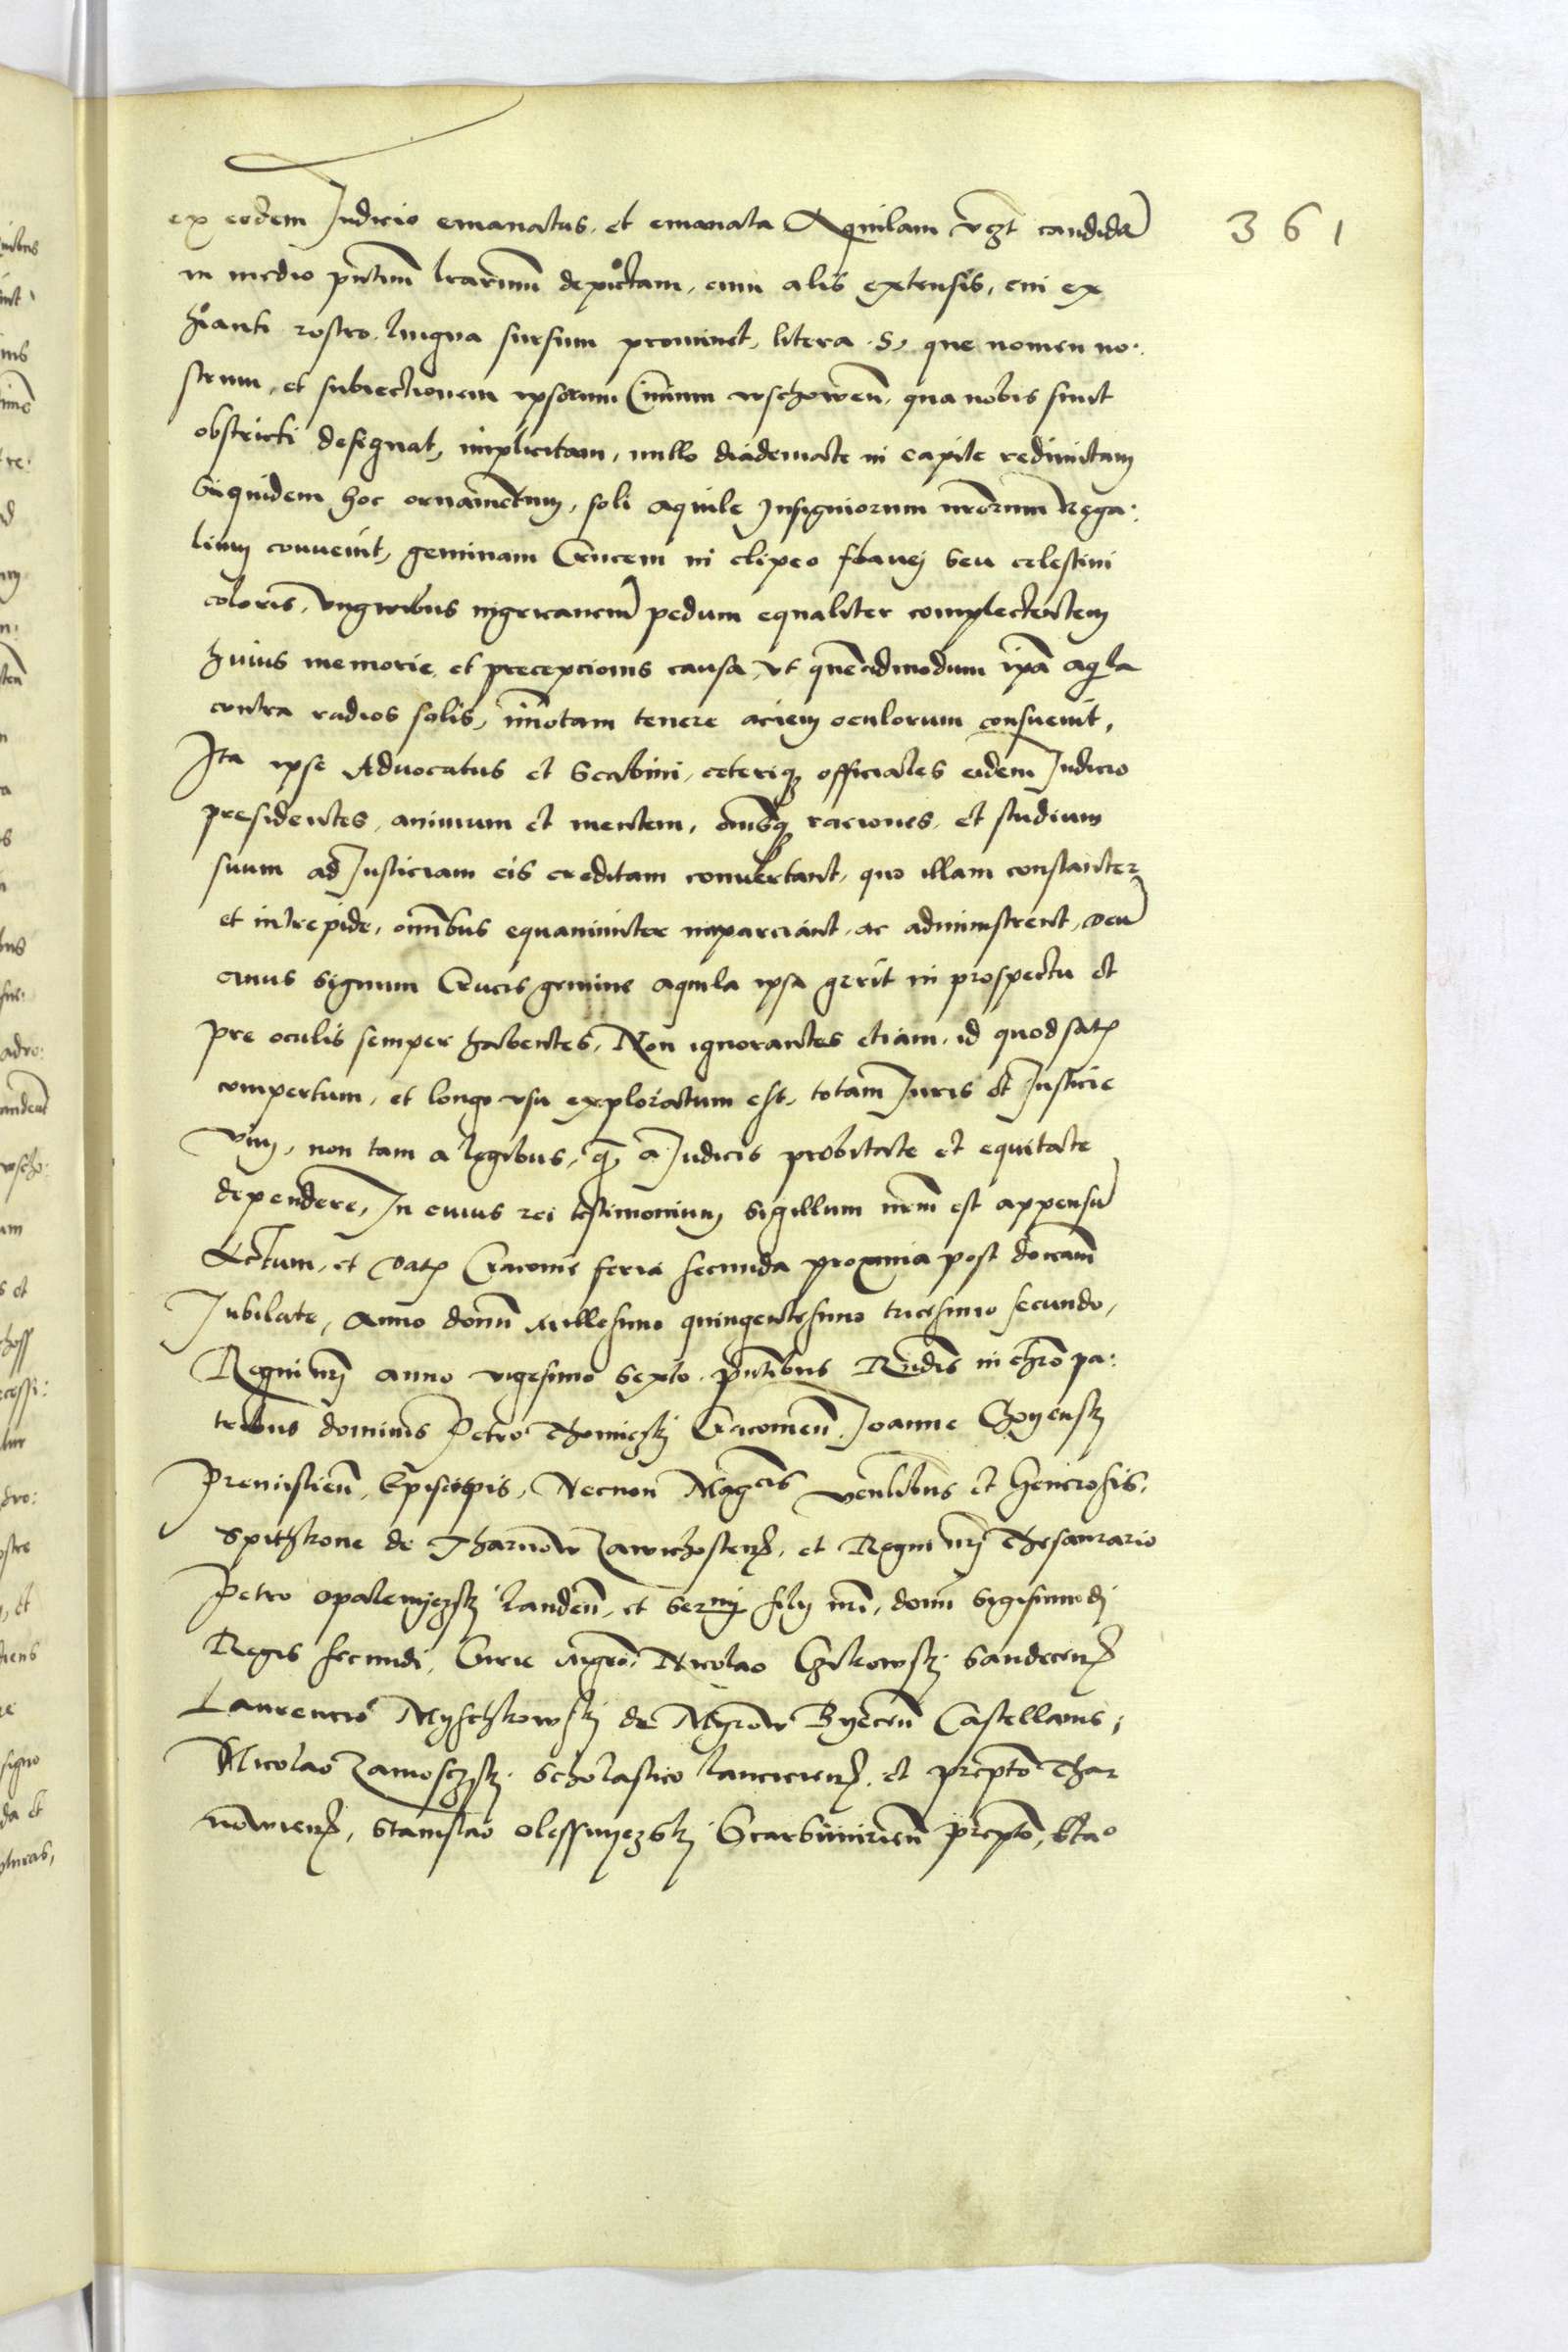 361
ex eodem Judicio emanatus, et emanata Aquilam vczt candidā
in medio pn̄tium l̄rarum depictam, cum alis extensis, cui ex
hianti rostro lingua sursum prominet, litera .S. que nomen no:
strum, et subiectionem ipsorum Civium wschowen̄, qua nobis sunt
obstricti designat, implicitam, nullo diademate in capite redimitam
Siquidem hoc ornamentum, soli aquile Insigniorum nr̄orum Rega:
lium convenit, geminam Crucem in clipeo flavej seu celestini
coloris, vnguibus pedum equaliter complectentem
huius memorie et precepcionis causa, vt quēadmodum ip̄a aq̄la
contra radios solis, īmotam tenere aciem oculorum consuevit,
Ita ipse Advocatus et Scabini, ceteriqȝ officiales eidem Judicio
presidentes, animum et mentem, om̄sqȝ raciones, et studium
suum ad Justiciam eis creditam convertant, quo illam constanter
et intrepide, om̄ibus equanimiter imparciant, ac administrent, Deū
cuius signum Crucis gemine aquila ipsa gerit in prospectu et
pre oculis semper habentes, Non ignorantes etiam, id quod satȝ
compertum, et longo vsu exploratum est, totam Juris et Justicie
vim, non tam a legibus, qȝ a Judicis probitate et equitate
dependere, In cuius rei testimonium sigillum nr̄m est appensū
Actum, et datȝ Cracovie feria secunda proxima post dn̄icam
Jubilate, Anno domī Millesimo quingentesimo tricesimo secundo,
Regni nr̄j anno vigesimo sexto. pn̄tibus Rn̄dis in chr̄o pa:
tribus dominis Petro Thomiczkj Cracovien̄, Joanne Choyenskj
Premislien̄, Episcopis, Necnon Mag̅cis venl̄ibus et Generosis,
Spithkone de Tharnow Zawichostenȝ, et Regni nr̄j Thesaurario
Petro Opalenyczskj Landen̄, et Ser̄mj filij nr̄i, domī Sigismūdj
Regis secundi, Curie mgr̄o, Nicolao Sandecenȝ
Laurencio Myschkowskj de Myrow Byecen̄ Castellanis,
Nicolao Zamosczskj Scholastico Lancicienȝ, et prep̄to Thar
nowienȝ, Stanislao Olessnyczskj Scarbimirien̄ prep̄to, Stao